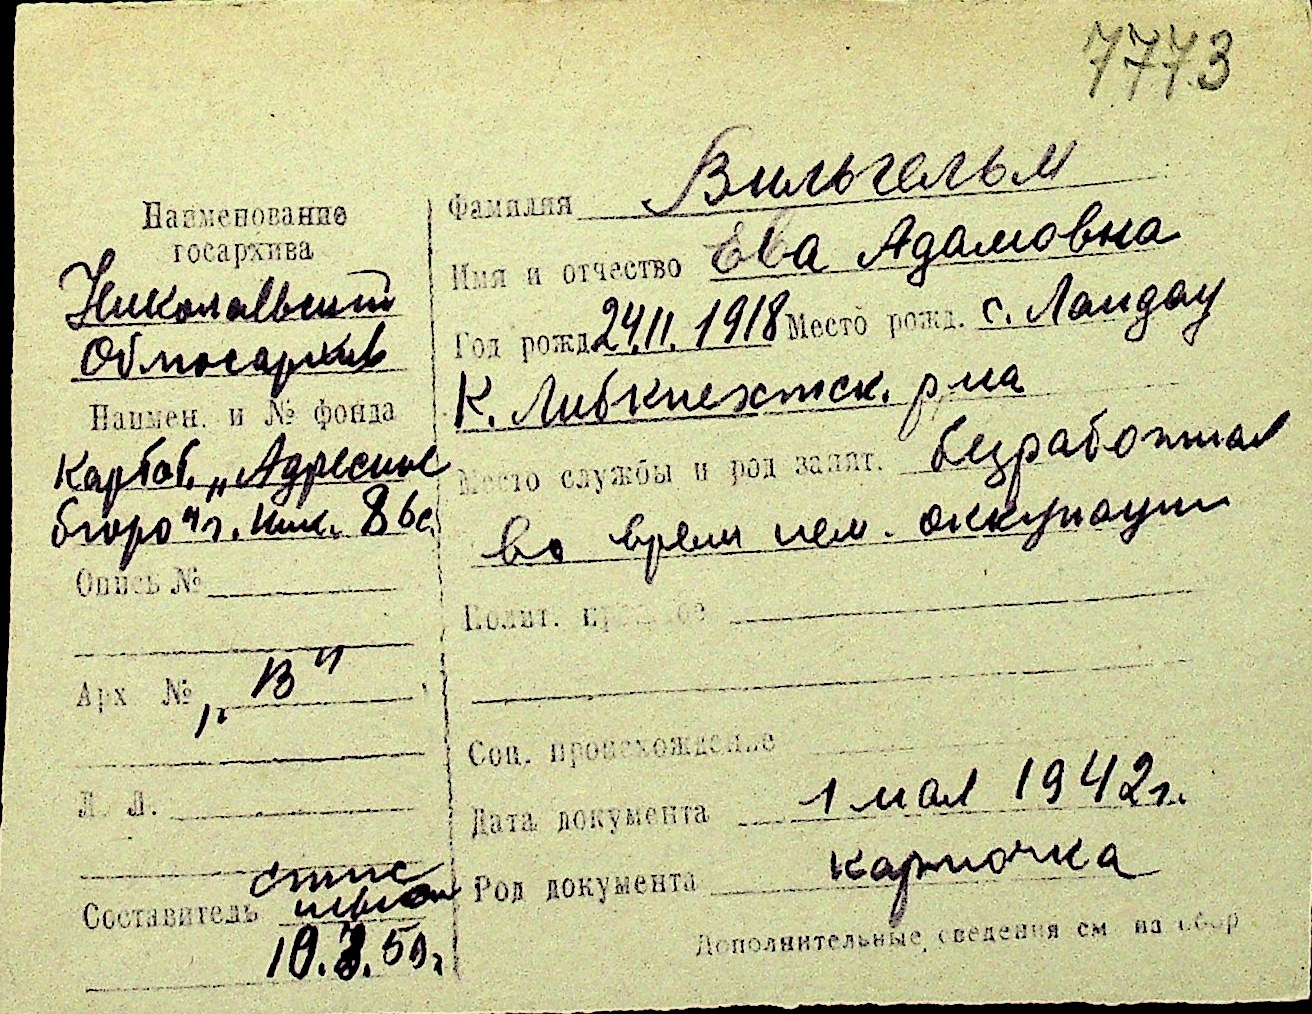 7773
Наименование
госархива
Николаевский
Облгосархив
Наимен. и № фонда
картот. „Адресное
бюро" г. Ник.
Опись №
Арх №
„В"
Л. Л.
Составитель
10.3.50 г.
Фамилия Вильгельм
Имя и отчество Ева Адамовна
Год рожд. 24.11.1918 Место рожд. с. Ландау
К. Либкнехтск. р-на
Место службы и род занят. безработная
во время нем. оккупации
Полит. прошлое
Соц. происхождение
Дата документа 1 мая 1942 г.
Род документа карточка
Дополнительные сведения см на обор